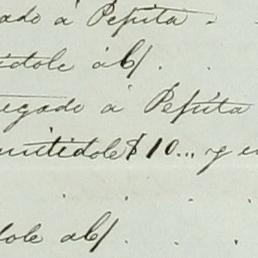 ado á Pepita
tidole ab/.
egado á Pepita
mitidole $10... y en
dole ab/.